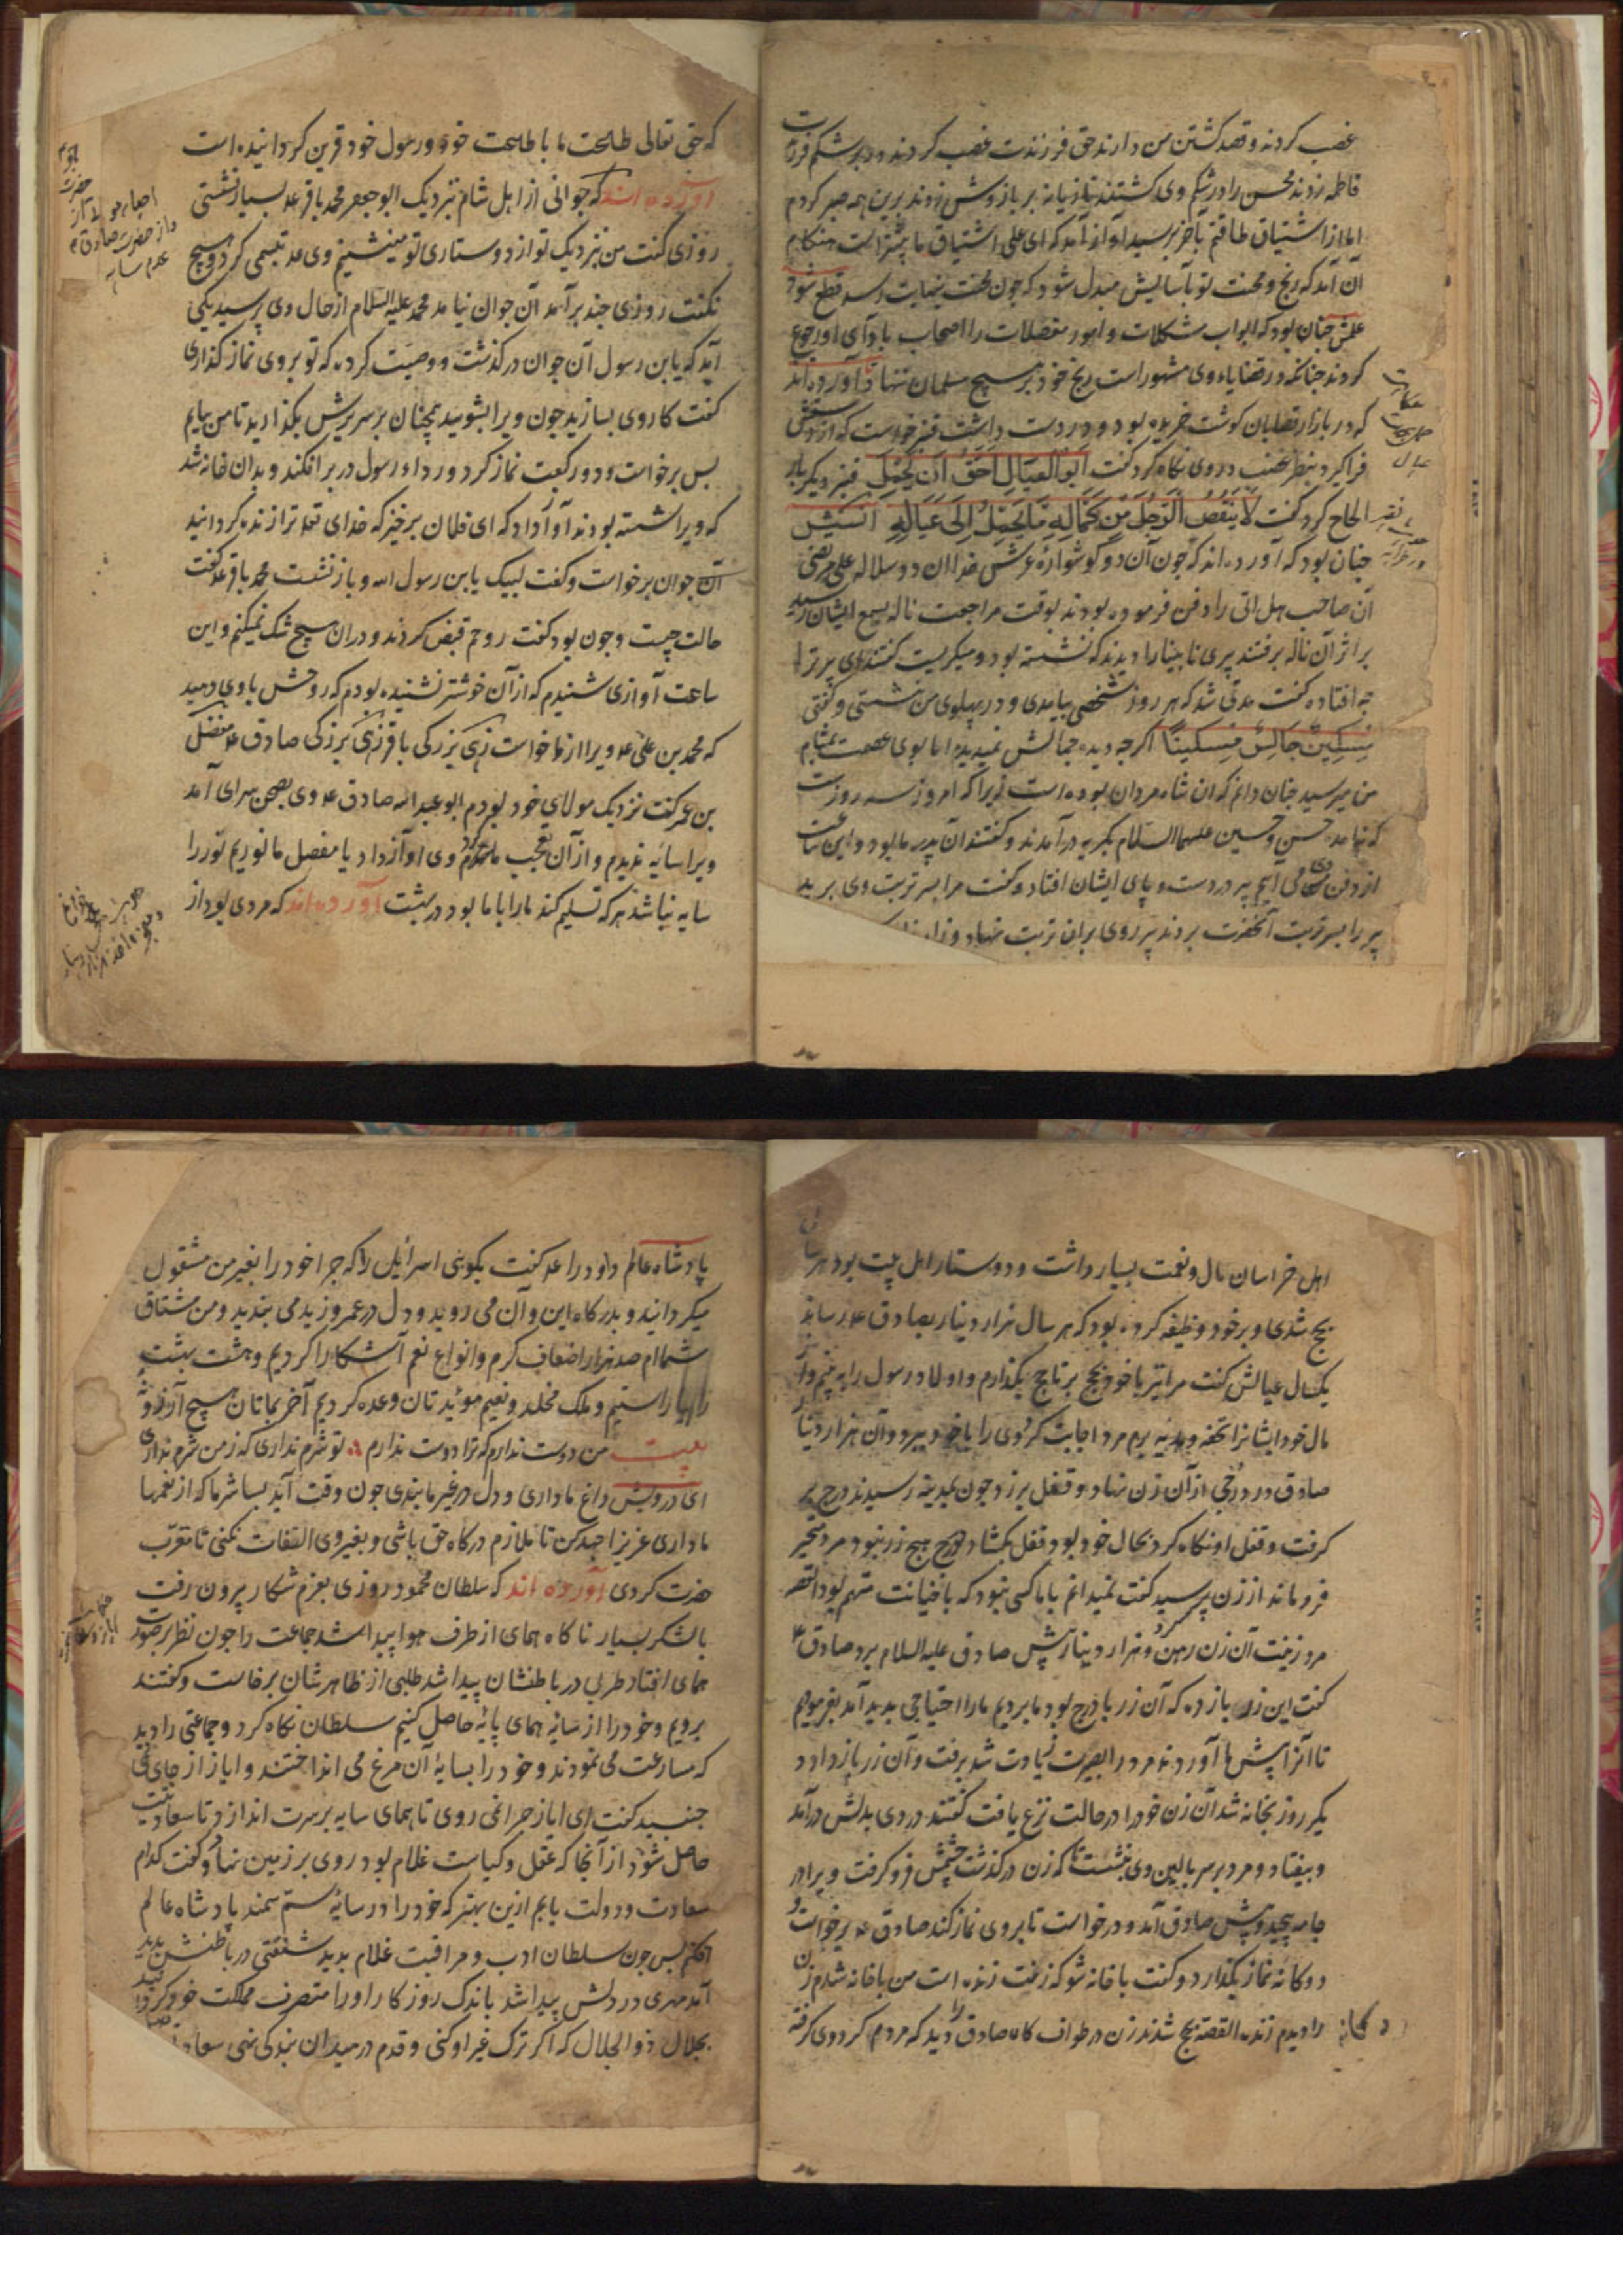 غصب کردند و قصد کشتن من دارند حق فرزندت غصب کردند و در بر شکم فرزندت
فاطمه زدند محسن را در شکم وی کشتند تازیانه بر بازوش زدند برین همه صبر کردم
اما از اشتیاق طاقتم بآخر برسید آواز آمد که ای علی اشتیاق ما بیشتر است هنکام
آن آمد که رنج و محنت تو بآسایش مبدل شود که چون محنت بنهایت رسد قطع شود
علمش چنان بود که ابواب مشکلات و امور معضلات را اصحاب با وآی او رجوع
کردند چنانکه در قضایاء وی مشهور است رنج خود بر هیچ مسلمان ننهاد آورده اند
که در بازار قصابان کوشت خریده بود و در دست داشت قنبر خواست که از دستش
فرا کیرد بنظر غضب در وی نکاه کرد کفت ابو العیال احق ان یحمل قنبر دیکر بار
الحاح کرد کفت لا ینقص الرجل من کماله ما یحمل الی عیاله انسش
چنان بود که آورده اند که چون آن دو کوشوارهٔ عرش خدا ان دو سلاله علی مرتضی
آن صاحب هل اتی را دفن فرموده بودند بوقت مراجعت ناله بسمع ایشان رسید
بر اثر آن ناله برفتند پیری نابینا را دیدند که نشسته بود و میکریست کفتند ای پیر ترا
چه افتاده کفت مدتی شد که هر روز شخصی بیامدی و در پهلوی من نشستی و کفتی
مسکین جالس مسکینا اکرچه دیده جمالش نمیدید اما بوی عصمت بمشام
من میرسید چنان دانم که ان شاه مردان بوده است زیرا که امروز سه روز است
که نیامد حسن و حسین علیهما السلام بکریه درآمدند و کفتند آن پدر ما بود و این ساعت
از دفن وی می آییم پیر در دست و پای ایشان افتاد و کفت مرا بسر تربت وی برید
پیر را بسر تربت آنحضرت بردند پیر روی بران تربت نهاد و زار
که حق تعالی طلعت ما با طلعت خود و رسول خود قرین کردانیده است
آورده اند که جوانی از اهل شام نزدیک ابو جعفر محمد باقر ع بسیار نشستی
روزی کفت من نزدیک تو از دوستاری تو مینشینم وی ع تبسمی کرد و هیچ
نکفت روزی چند برآمد آن جوان نیامد محمد علیه السلام از حال وی پرسید یکی
آمد که یا بن رسول آن جوان درکذشت و وصیت کرده که تو بروی نماز کذاری
کفت کار وی بسازید چون ویرا بشویید همچنان بر سریرش بکذارید تا من بیایم
پس برخواست و دو رکعت نماز کرد و ردا و رسول در بر افکند و بدان خانه شد
که ویرا شسته بودند آواز داد که ای فلمان برخیز که خدای تع ترا زنده کردانید
آن جوان برخواست و کفت لبیک یا بن رسول الله و باز نشست محمد باقر ع کفت
حالت چیست و چون بود کفت روحم قبض کردند و دران هیچ شک نمیکنم و این
ساعت آوازی شنیدم که از آن خوشتر نشنیده بودم که روحش با وی دهید
که محمد بن علی ع ویرا از ما خواست زهی بزرکی باقر زهی بزرکی صادق ع مفضل
بن عمر کفت نزدیک مولای خود بودم ابو عبد الله صادق ع وی بصحن سرای آمد
ویرا سایه ندیدم و از آن تعجب ماندم وی آواز داد یا مفضل ما نوریم نور را
سایه نباشد هرکه تسلیم کند ما را با ما بود در بهشت آورده اند که مردی بود از
اهل خراسان مال و نعمت بسیار داشت و دوستار اهل بیت بود هر سال
بحج شدی و بر خود وظیفه کرده بود که هر سال هزار دینار بصادق ع رساند
یکسال عیالش کفت مرا نیز با خود بحج بر تا حج بکذارم و اولاد رسول را به بینم و از
مال خود ایشانرا تحفه و هدیه برم مرد اجابت کرد وی را با خود ببرد و آن هزار دینار
صادق در درجی از آن زن نهاد و قفل برزد چون بمدینه رسیدند درج بر
کرفت و قفل او نکاه کرد بحال خود بود قفل بکشاد در درج هیچ زر نبود مرد متحیر
فروماند از زن پرسید کفت نمیدانم با ما کسی نبود که با خیانت متهم بود القصه
مرد زینت آن زن رهن کرد و هزار دینار پیش صادق علیه السلام برد صادق ع
کفت این زر باز ده که آن زر با درج بود ما بردیم ما را احتیاجی بدید آمد بفرمودیم
تا آنرا پیش ما آوردند مرد را بصیرت زیادت شد برفت و آن زر باز داد
یکر روز بخانه شد آن زن خود را در حالت نزع یافت کفتند دردی بدلش درآمد
و بیفتاد و مرد بر سر بالین وی بنشست تا که زن درکذشت چشمش فرو کرفت و ویرا در
جامه پیچید و پیش صادق آمد و درخواست تا بروی نماز کند صادق ع برخواست و
دوکانه نماز بکذارد و کفت با خانه شو که زینت زنده است من با خانه شدم زن
را دیدم زنده القصه بحج شدند زن در طواف کاه صادق را دید که مردم کرد وی کرفته
پادشاه عالم داود را ع کفت بکو بنی اسرائیل را که چرا خود را بغیر من مشغول
میکردانید و بدرکاه این و آن می روید و دل در عمرو و زید می بندید و من مشتاق
شما ام صد هزار اضعاف کرم و انواع نعم آشکارا کردیم و هشت بهشت
را بیاراستیم و ملک مخلد و نعیم موئبد تان وعده کردیم آخر بماتان هیچ آرزو نه
بیت من دوست ندارم که ترا دوست ندارم تو شرم نداری که ز من شرم نداری
ای درویش داغ ما داری و دل در غیر ما بندی چون وقت آید بسا شرما که از نعمها
ما داری عزیزا جهد کن تا ملازم درکاه حق باشی و بغیر وی التفات نکنی تا مقرب
حضرت کردی آورده اند که سلطان محمود روزی بعزم شکار بیرون رفت
با لشکر بسیار ناکاه همای از طرف هوا پیدا شد جماعت را چون نظر بر صورت
همای افتاد طربی در باطنشان پیدا شد طلبی از ظاهرشان برخاست و کفتند
برویم و خود را از سایهٔ همای پایهٔ حاصل کنیم سلطان نکاه کرد و جماعتی را دید
که مسارعت می نمودند و خود را بسایهٔ آن مرغ می انداختند و ایاز از جای نمی
جنبید کفت ای ایاز چرا نمی روی تا همای سایه بر سرت اندازد تا سعادتیت
حاصل شود از آنجا که عقل و کیاست غلام بود روی بر زمین نهاد و کفت کدام
سعادت و دولت یابم ازین بهتر که خود را در سایهٔ سم سمند پادشاه عالم
افکنم پس چون سلطان ادب و مراقبت غلام بدید شفقتی در باطنش پدید
آمد مهری در دلش پیدا شد باندک روزکار او را متصرف مملکت خود کردانید
بجلال ذو الجلال که اکر ترک غیر او کنی و قدم در میدان بندکی نهی